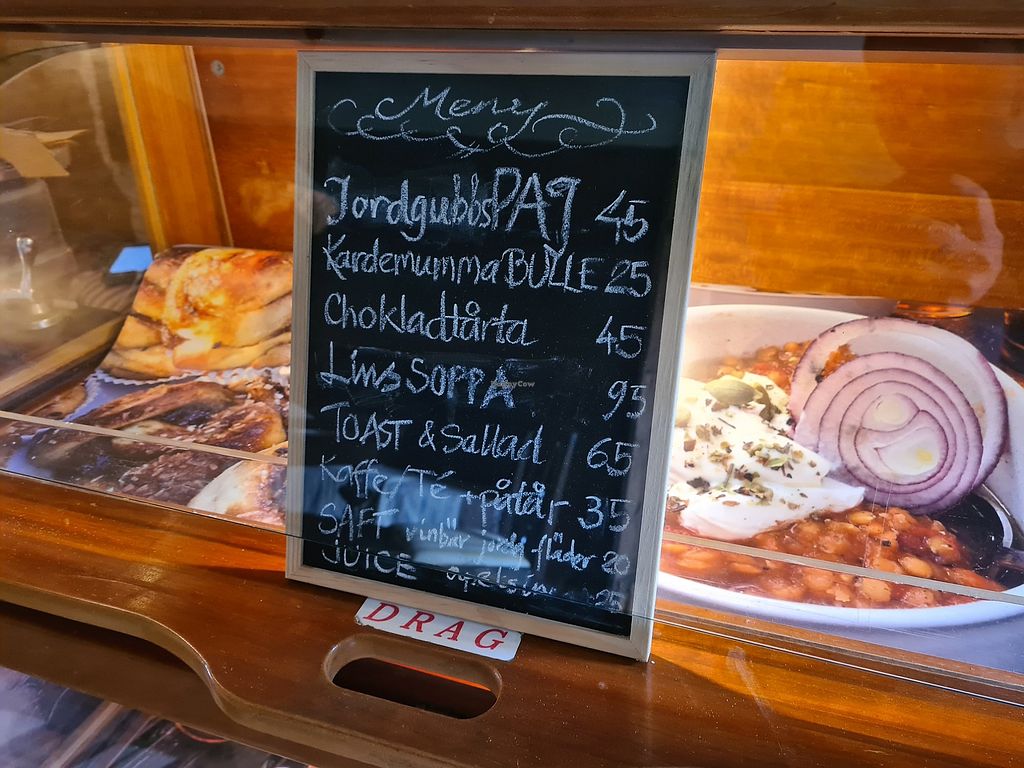 Meny
JordgubbsPAJ 45
KardemummaBULLE 25
Chokladtårta 45
LinsSOPPA 95
TOAST & Sallad 65
Kaffe/Té +påtår 35
SAFT vinbär jordg fläder 20
JUICE Apelsin 25
DRAG